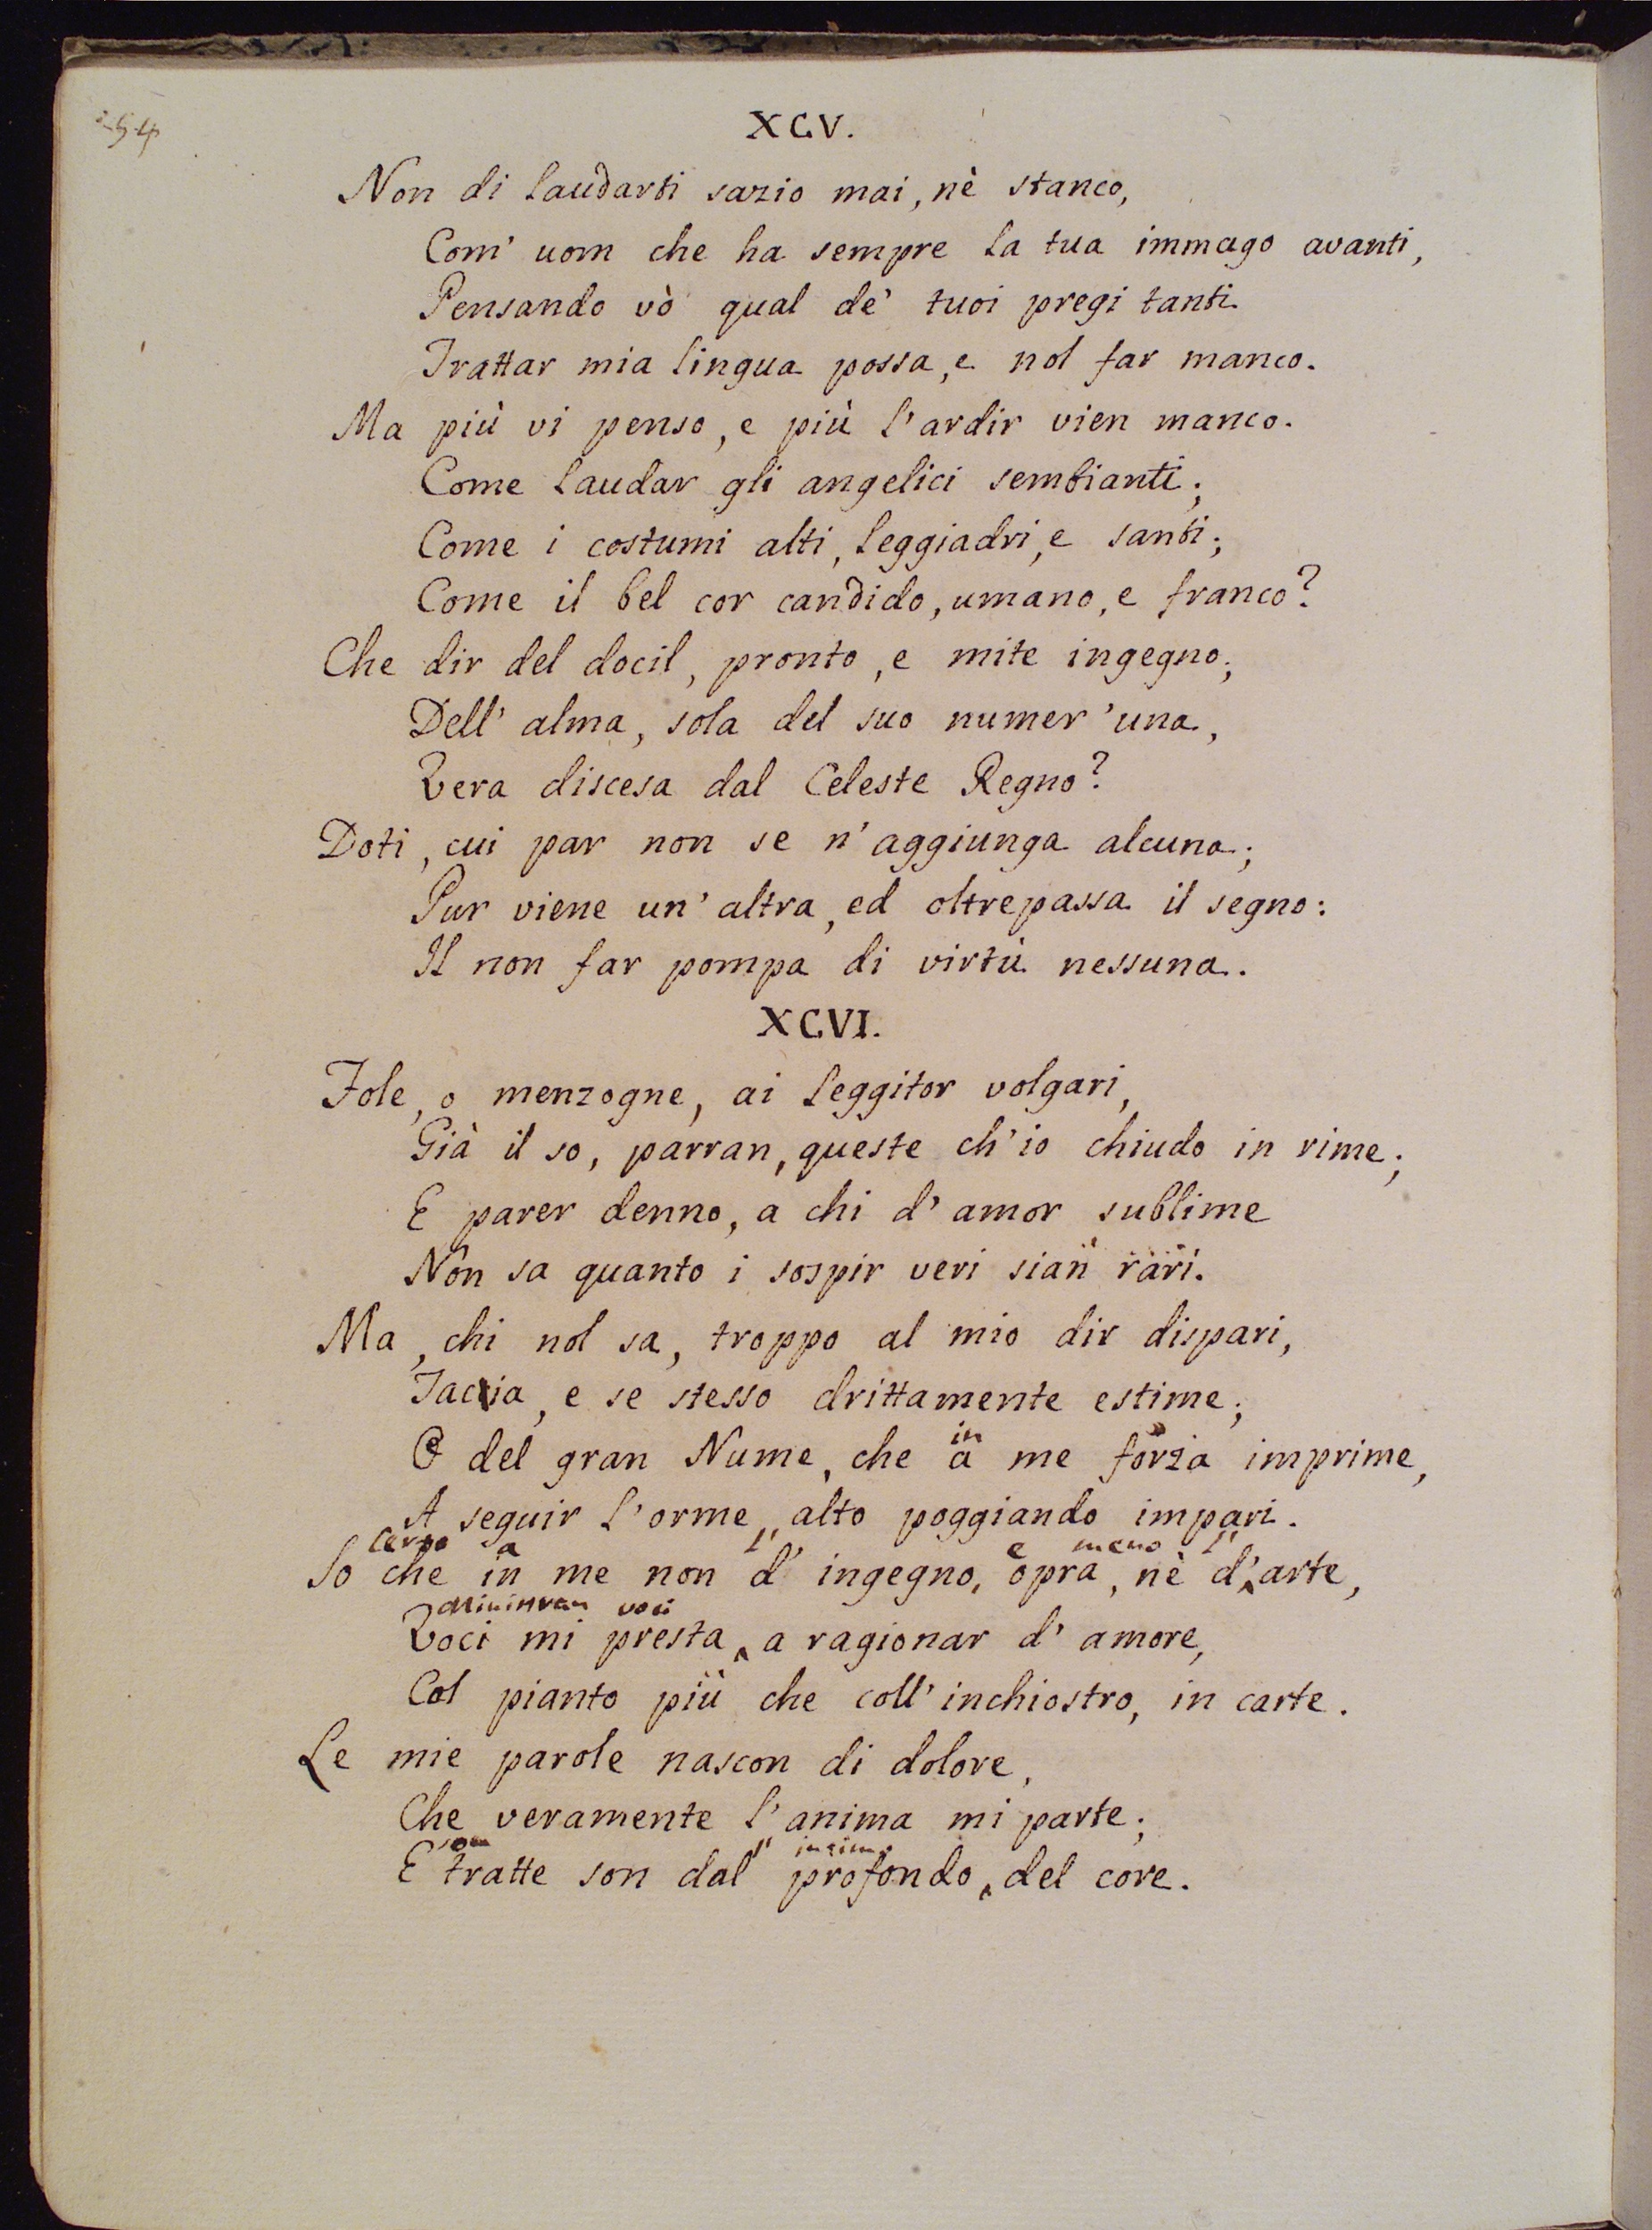 254
XCV.
Non di laudarti sazio mai, nè stanco,
Com' uom che ha sempre la tua immago avanti,
Pensando vò qual de' tuoi pregi tanti
Trattar mia lingua possa, e nol far manco.
Ma più vi penso, e più l'ardir vien manco.
Come laudar gli angelici sembianti;
Come i costumi alti, leggiadri, e santi;
Come il bel cor candido, umano, e franco?
Che dir del docil, pronto, e mite ingegno;
Dell' alma, sola del suo numer' una,
Vera discesa dal Celeste Regno?
Doti, cui par non se n'aggiunga alcuna;
Pur viene un' altra, ed oltrepassa il segno:
Il non far pompa di virtù nessuna.
XCVI.
Fole, o menzogne, ai leggitor volgari,
Già il so, parran, queste ch'io chiudo in rime;
E parer denno, a chi d'amor sublime
Non sa quanto i sospir veri sian rari.
Ma, chi nol sa, troppo al mio dir dispari,
Taccia, e se stesso drittamente estime;
O del gran Nume, che a me forza imprime,
in
A seguir l'orme, alto poggiando impari.
Certo a l' e meno l'
So che in me non d'ingegno, opra, nè d'arte,
Ministran voci
Voci mi presta, a ragionar d'amore,
Col pianto più che coll'inchiostro, in carte.
Le mie parole nascon di dolore,
Che veramente l'anima mi parte;
son l' intimo
E tratte son dal profondo, del core.